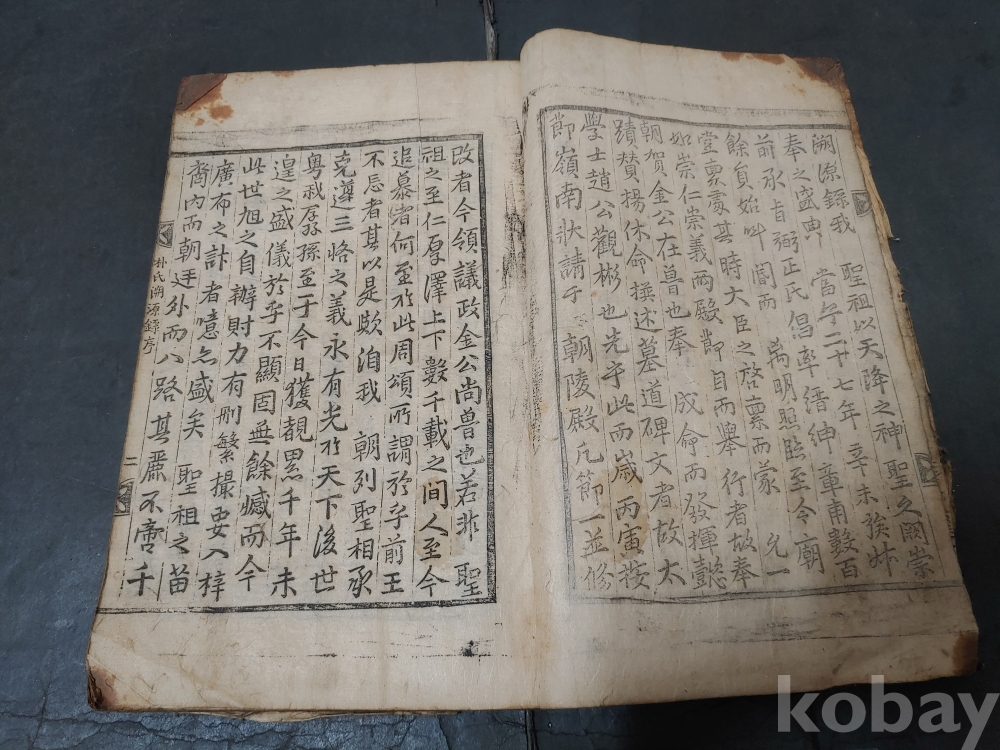 溯源錄我　聖祖以天降之神聖之闕崇
奉之盛典　當宁二十七年辛未族姓
前承旨弼正氏倡率縉紳章甫數百
餘負始呌　閽而　萬明照臨至令廟
堂稟處其時大臣之啓稟而蒙　允一
如崇仁崇義兩殿節目而擧行者故奉
朝賀金公在魯也奉　成命而發揮懿
蹟贊揚休命撰述墓道碑文者故太
學士趙公觀彬也先乎此而歲丙寅按
節嶺南狀請于　朝陵殿凡節一並修
改者今領議政金公尚魯也若非　聖
祖之至仁厚澤上下數千載之間人至今
追慕者何至於此周頌所謂於乎前王
不忘者其以是歟洎我　朝列聖相承
克遵三恪之義永有光於天下後世
粤我孱孫至于今日獲覩累千年未
遑之盛儀於乎不顯固無餘憾而今
此世旭之自辦財力有刑繁撮要入梓
廣布之計者噫亦盛矣　聖祖之苗
裔內而朝廷外而八路其麗不啻千
朴氏溯源錄序
二
kobay